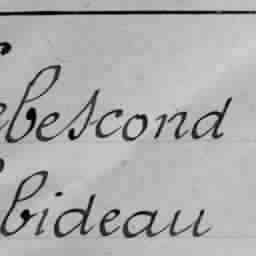 ebescond
bideau